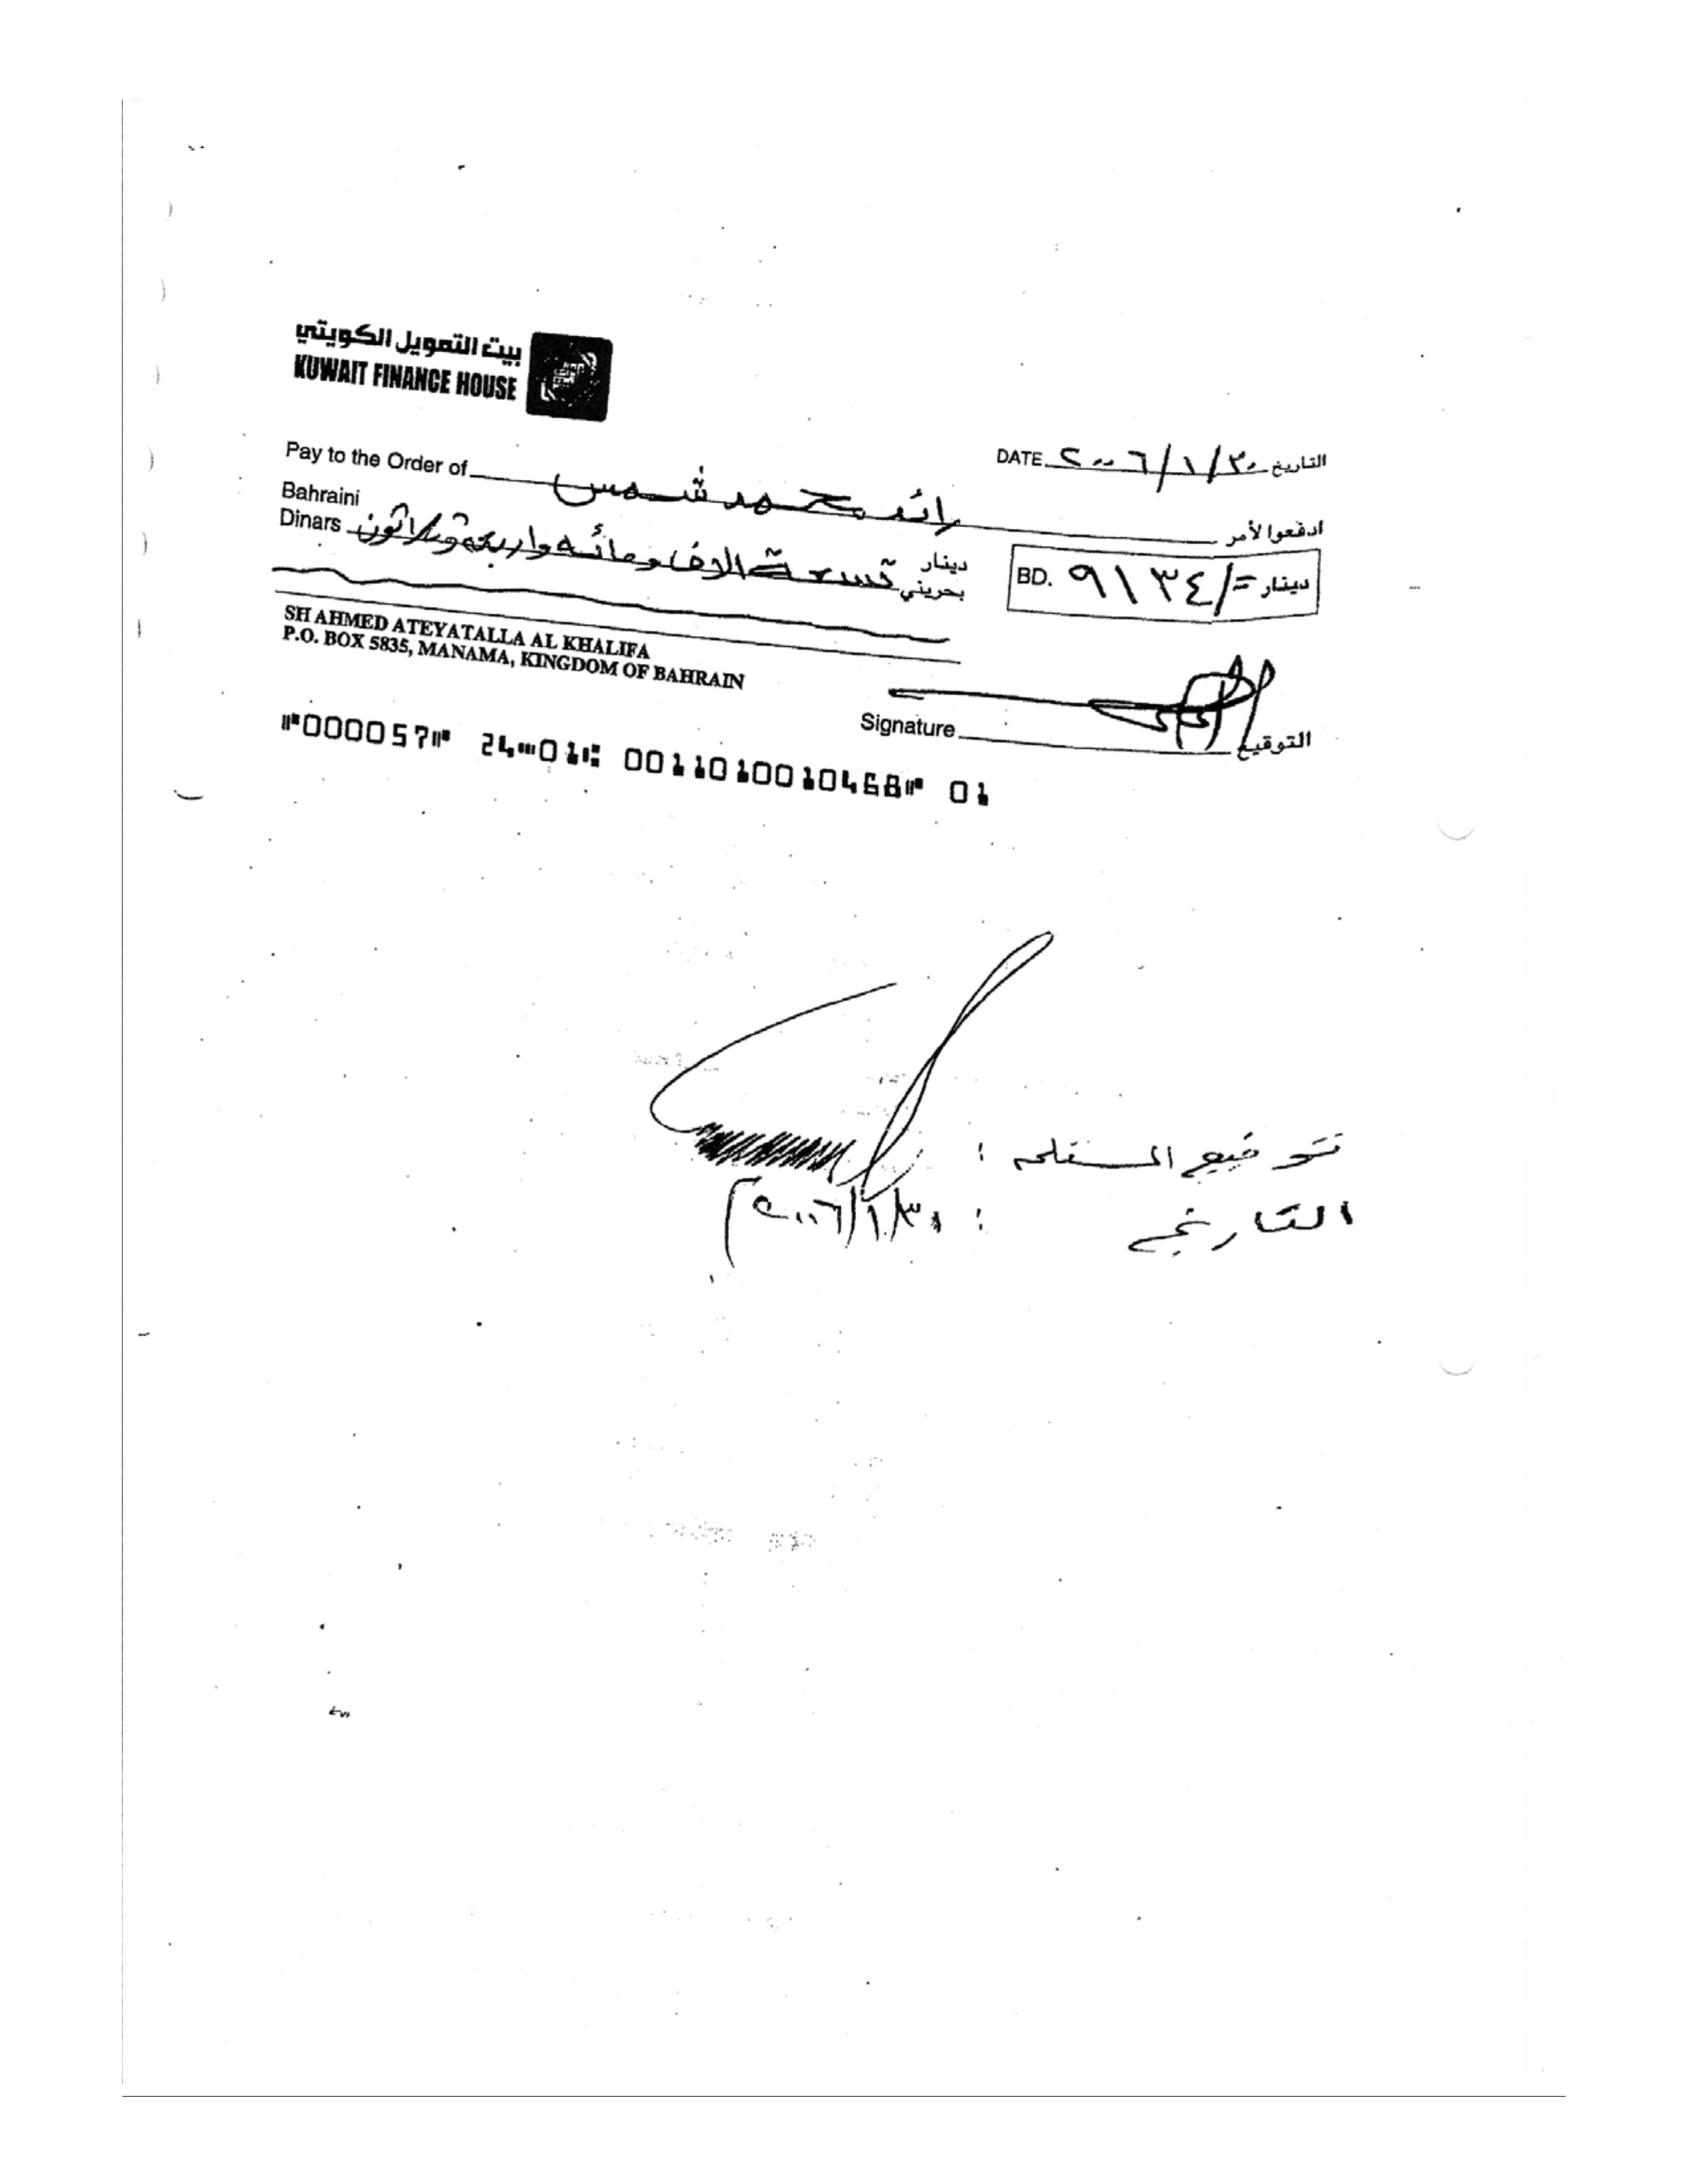 بيت التمويل الكويتي
KUWAIT FINANCE HOUSE
DATE ٢٠٠٦/١/٣٠ التاريخ
Pay to the Order of رائد محمد شمس ادفعوا لأمر
Bahraini Dinars تسعة الاف ومائه واربعه وثلاثون دينار بحريني
BD. ٩١٣٤/= دينار
SH AHMED ATEYATALLA AL KHALIFA
P.O. BOX 5835, MANAMA, KINGDOM OF BAHRAIN
Signature التوقيع
⑈000057⑈ 24⑉01⑆ 0011010010468⑈ 01
توقيع المستلم :
التاريخ :